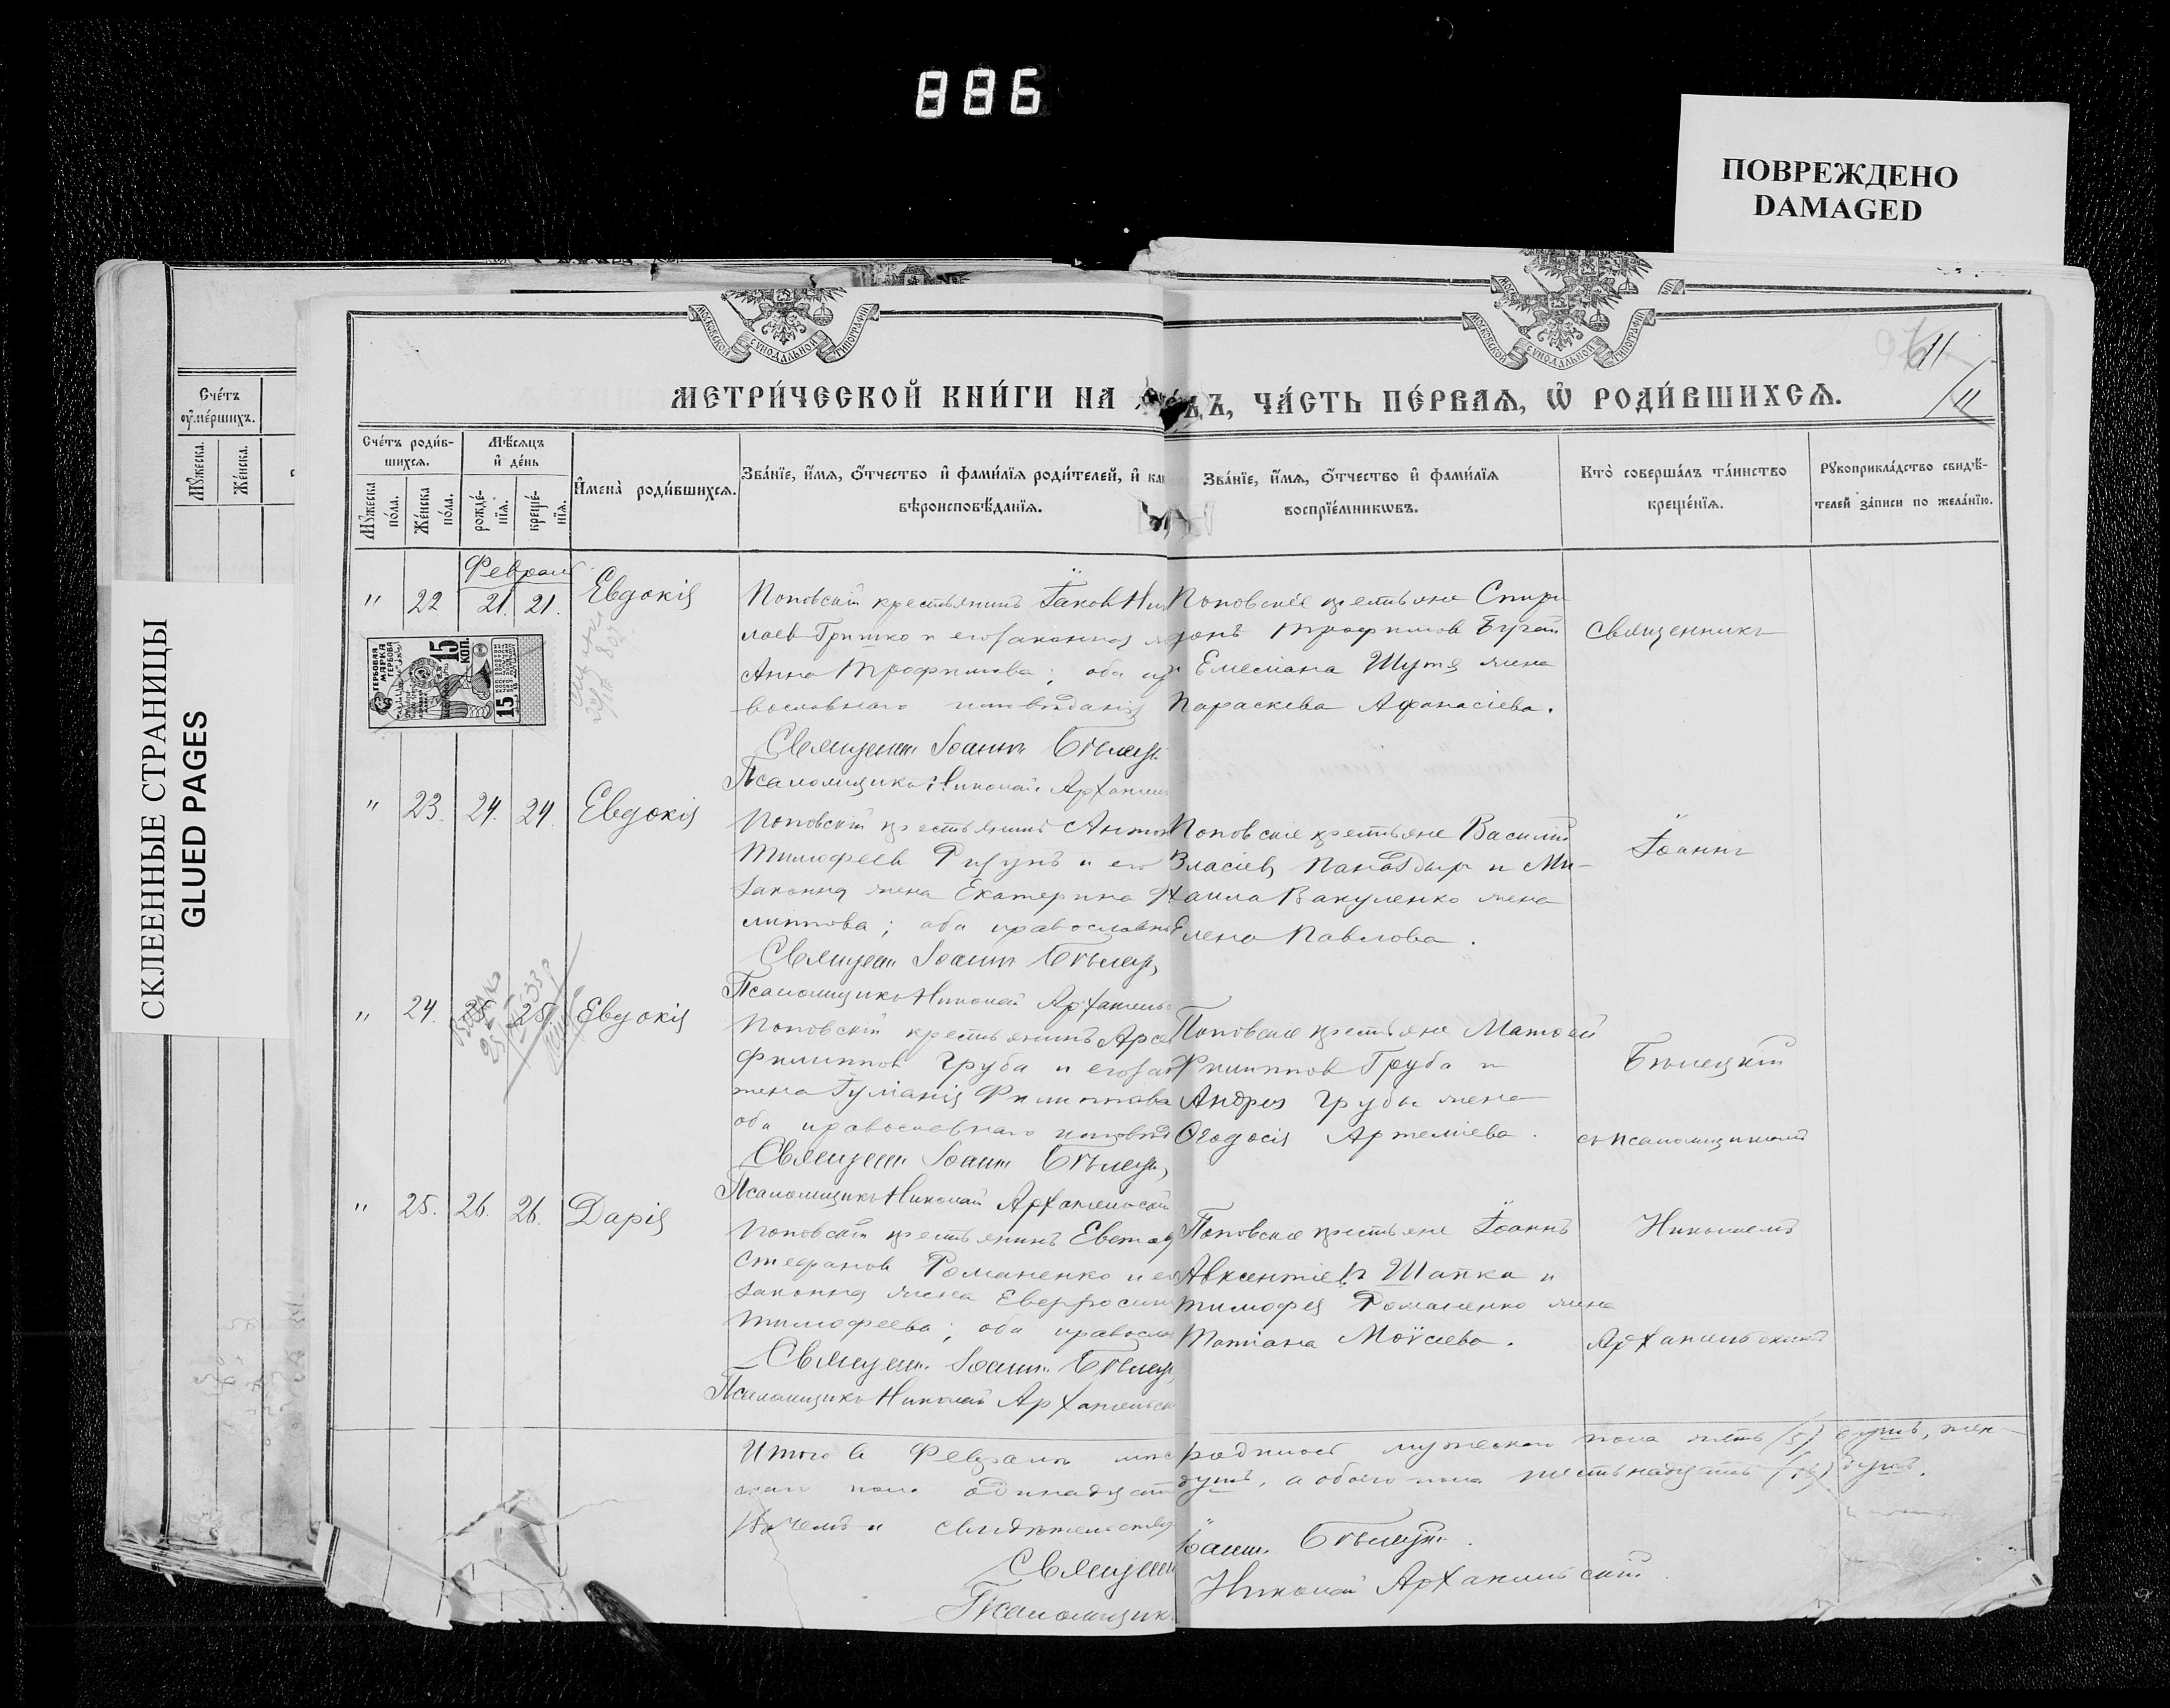 886
ПОВРЕЖДЕНО
DAMAGED
СКЛЕЕННЫЕ СТРАНИЦЫ
GLUED PAGES
Сче́тъ
оумє́ршихъ.
Мꙋ́жеска.
Же́нска.
МОСКОВСКОЙ СѴНОДАЛЬНОЙ ТИПОГРАФІИ
МОСКОВСКОЙ СѴНОДАЛЬНОЙ ТИПОГРАФІИ
11
11
МЕТРИ́ЧЕСКОЙ КНИ́ГИ НА ДЪ, ЧА́СТЬ ПЕ́РВАѦ, Ѡ РОДИ́ВШИХСѦ.
Сче́тъ роди́в-
шихсѧ.
Мꙋ́жеска по́ла.
Же́нска по́ла.
Мѣ́сѧцъ
и де́нь
рожде́-
нїѧ.
креще́-
нїѧ.
Имена̀ роди́вшихсѧ.
Зва́нїе, и́мѧ, о́тчество и фами́лїѧ роди́телей, и как
вѣроисповѣ́данїѧ.
Зва́нїе, и́мѧ, о́тчество и фами́лїѧ
воспрїе́мникѡвъ.
Кто̀ соверша́лъ та́инство
креще́нїѧ.
Рꙋкоприкла́дство свидѣ́-
телей за́писи по жела́нїю.
" 22 21. 21. Евдокія
ГЕРБОВАЯ МАРКА
15 КОП.
15
Поповскій крестьянинъ Іаков Ни
лаев Гришко и его законная
Анна Трофимова; оба пр
вославнаго исповѣданія
Священ. Іоаннъ Бѣлец
Псаломщикъ Николай Архангел
Поповскіе крестьяне Спири
донъ Трофимов Бугай
и Емеліана Шутя жена
Параскева Афанасіева.
Священникъ
" 23. 24. 24. Евдокія
Поповскій крестьянинъ Антон
Тимофеев Ризунъ и его
законная жена Екатерина
липпова; оба православны
Священ. Іоаннъ Бѣлец
Псаломщикъ Николай Архангельс
Поповскіе крестьяне Василій
Власіев и Ми-
хаила Вакуленко жена
Елена Павлова.
Іоаннъ
" 24. 25. 25. Евдокія
Поповскій крестьянинъ Арсе
Филиппов Груба и его за
жена Іуліанія Филиппова
оба православнаго исповѣд
Священ. Іоаннъ Бѣлец
Псаломщикъ Николай Архангельскій
Поповскіе крестьяне Матвей
Филиппов Груба и
Андрея Грубы жена
Ѳеодосія Артеміева.
Бѣлецкій
съ псаломщикомъ
" 25. 26. 26. Дарія
Поповскій крестьянинъ Евстаф
Стефанов Романенко и ег
законная жена Евфросин
Тимофеева; оба правосла
Священ. Іоаннъ Бѣлец
Псаломщикъ Николай Архангельск
Поповскіе крестьяне Іоаннъ
Авксентіевъ Шапка и
Тимофея Романенко жена
Татіана Моѵсіева.
Николаемъ
Архангельскимъ
Итого в Февралѣ мѣс родилось мужескаго пола пять (5) душъ, жен-
скаго пола одинадцат душъ, а обоего пола шестьнадцать (16) душъ.
Въ чемъ и свидѣтельству
Священ Іоанн. Бѣлецк.
Псаломщик Николай Архангельскій